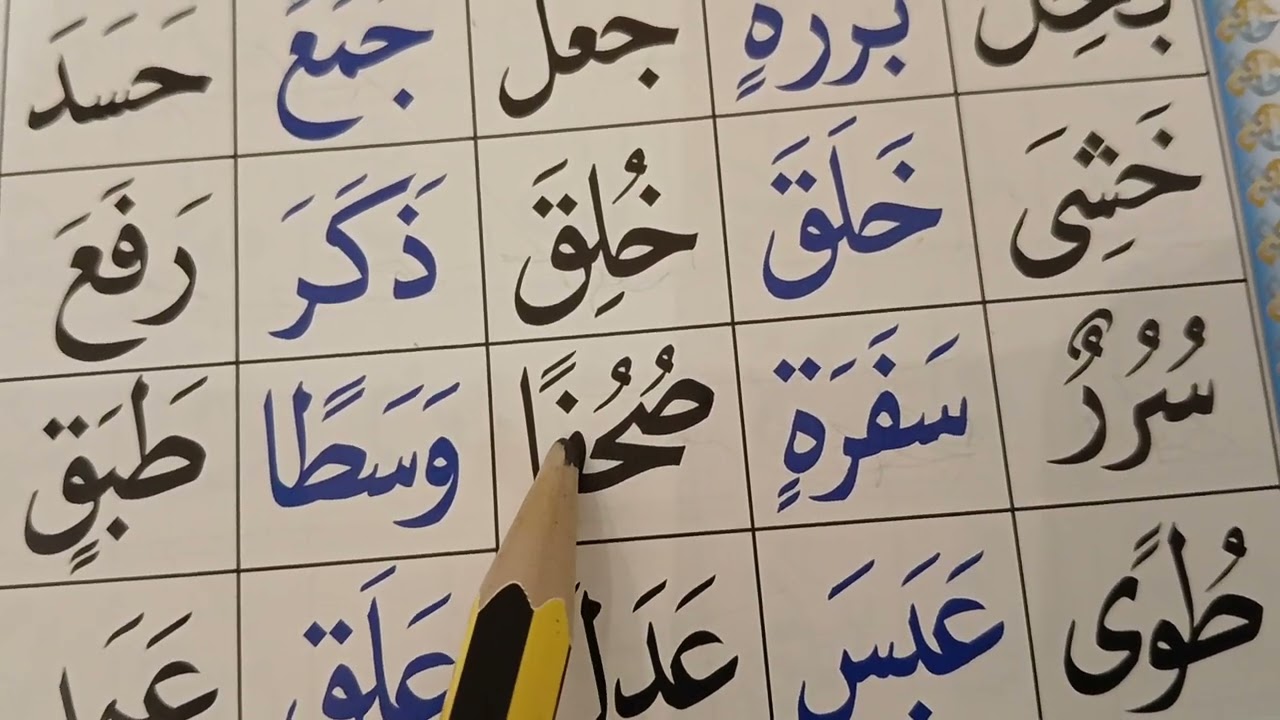 بخِل بررةٍ جعل جَمَعَ حَسَدَ
خَشِىَ خَلَقَ خُلِقَ ذَكَرَ رَفَعَ
سُرُرٌ سَفَرَةٍ صُحُفًا وَسَطًا طَبَقٍ
طُوًى عَبَسَ عَدَل عَلَق